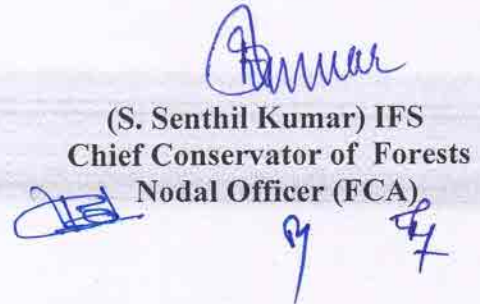 (S. Senthil Kumar) IFS
Chief Conservator of Forests
Nodal Officer (FCA)